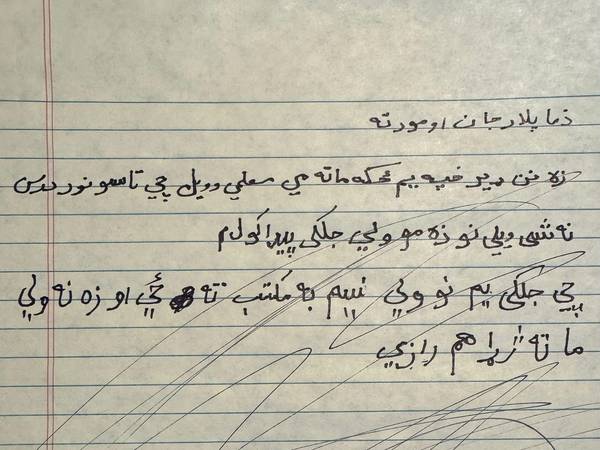 ذما پلار جان او مور ته
زه نن ډیر خپه یم ځکه ما ته مې معلمې وویل چې تاسو نور درس
نه شی ویلی نو زه مو ولې جلکۍ پیدا کولم
چې جلکۍ یم نو ولې نیم به مکتب ته ځې او زه نه ولې
ما ته ژړا هم رازې